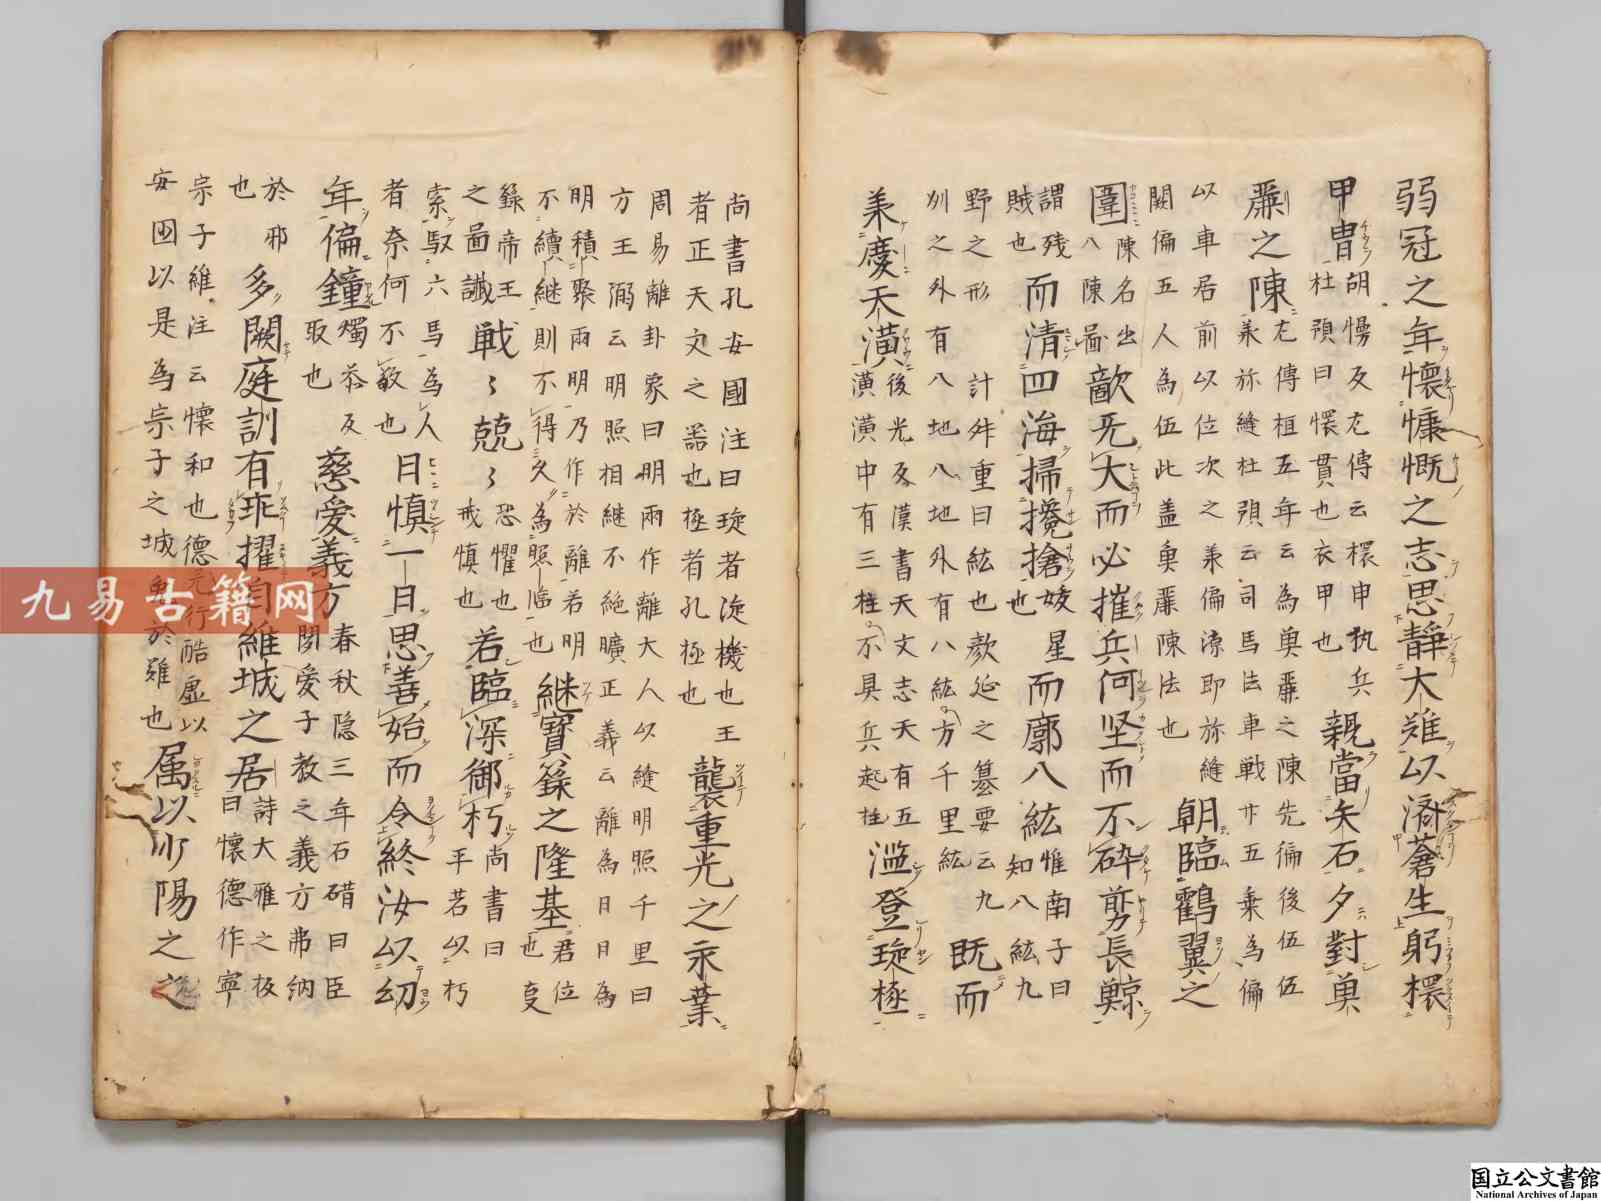 弱冠之年懷慷慨之志思靜大難以済蒼生躬擐
甲冑
胡慢反左傳云擐申执兵
杜預曰擐貫也衣甲也
親當矢石夕對奠
䴡之陳
左傳桓五年云為奠䴡之陳先偏後伍伍
兼弥縫杜預云司馬法車戦廿五乗為偏
以車居前以位次之兼偏漈即弥縫
闕偏五人為伍此盖奠䴡陳法也
朝臨鸛翼之
圍
陳名出
八陳啚
敵无大而必摧兵何坚而不砕剪長鯨
謂残
賊也
而清四海掃攙搶
妖星
也
而廓八紘
惟南子曰
知八紘九
野之形計舛重曰紘也延之蓦要云九
州之外有八地八地外有八紘方千里紘
既而
承慶天潢
後光反漢書天文志天有五
潢潢中有三柱不具兵起柱
濫登琁極
尚書孔安國注曰琁者淀機也王
者正天文之噐也極者孔極也
襲重光之永業
周易離卦象曰明兩作離大人以縫明照千里曰
方王溺云明照相継不絶曠正義云離為日月為
明積聚兩明乃作於離若明
不續継則不得久為照臨也
継寶籙之隆基
君位
也
錄帝王
之啚讖
戦〻兢〻
恐懼也
戒慎也
若臨深御朽
尚書曰
平若以朽
索馭六馬為人
者奈何不敬也
日慎一日思善始而令終汝以幼
年偏鐘
燭恭反
取也
慈愛義方
春秋隐三年石碏曰臣
聞愛子教之義方弗納
於邪
也
多闕庭訓有乖擢自維城之居
詩大雅之板
曰懷德作寧
宗子維注云懷和也德无行酷虚以
安國以是為宗子之城免於難也
属以少陽之之
九易古籍网
国立公文書館
National Archives of Japan